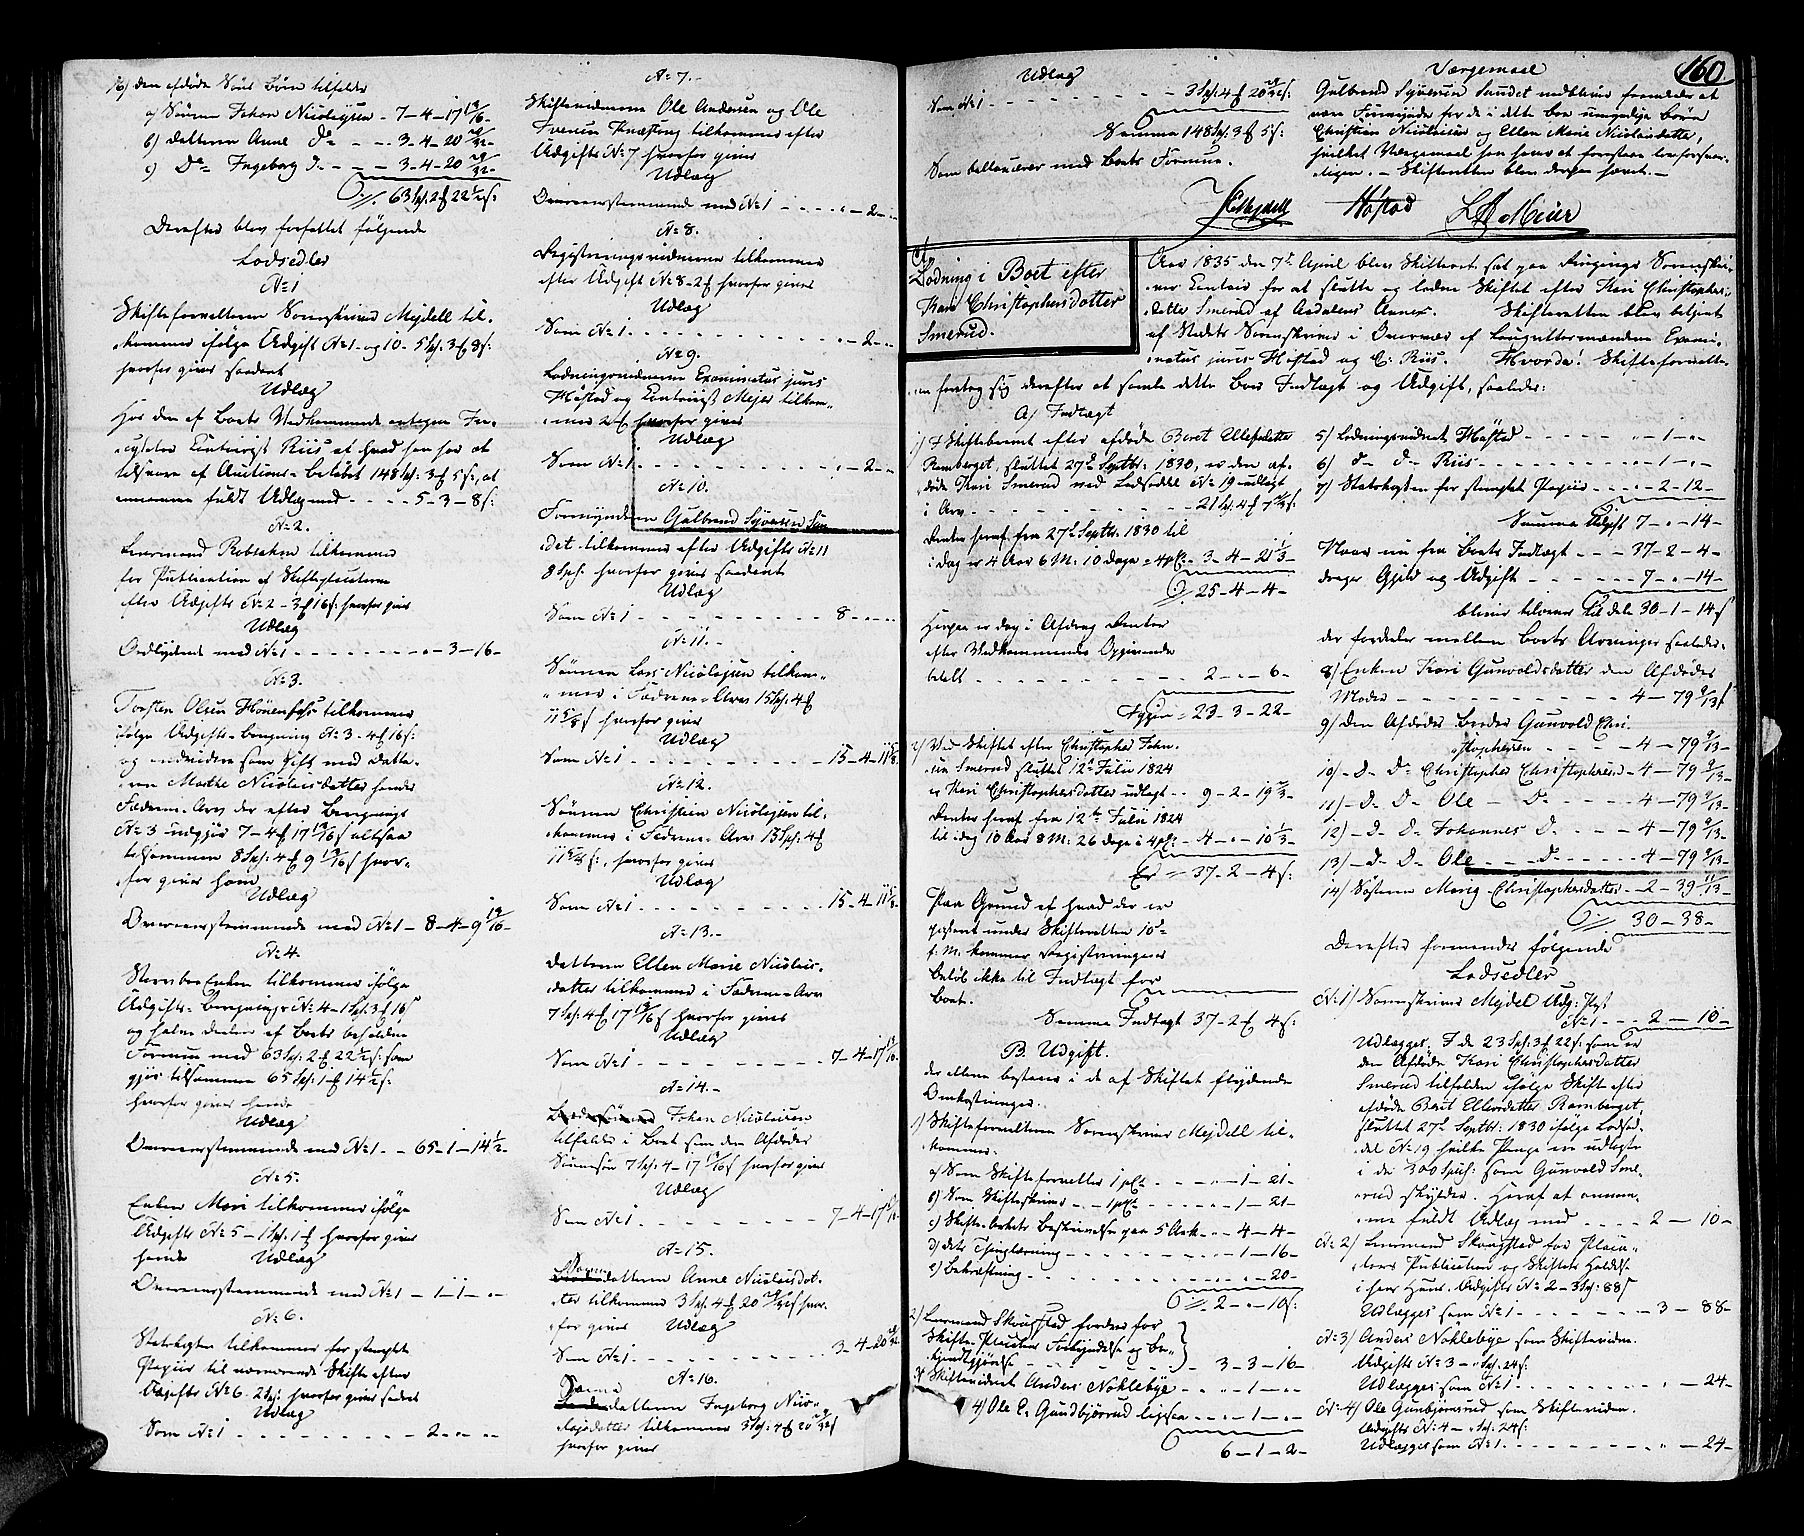 16) den afdöde Søns Børn tilfalder
a) Sønnen Johan Nicolaysen - 7-4-17 13/16
b) datteren Anne do - - 3-4-20 29/32
c) Do Ingeborg do - - 3-4-20 29/32
63 Sp: 2 ƒ 22 1/2 s:
Derefter blev forfattet følgende
Lodsedler
No 1
Skifteforvalteren Sorenskriver Mejdell til-
kommer ifølge Udgift No 1 og 10 - 5 Sp: 3 ƒ 8 s:
hvorfor gives saadant
Udlæg
Hos den af Boets Vedkommende antagne In-
cassator Contorist Riis af hvad han har at
tilsvare af Auctions-Beløbet 148 Sp: 3 ƒ 5 s:, at
annamme fuldt Udlæg med - - - 5-3-8 s:
No 2.
Lensmand Rebsahm tilkommer
for Publication af Skifteplacaterne
efter Udgifts No 2 - 3 ƒ 16 s: hvorfor gives
Udlæg
Ordlydende med No 1 - - - 3-16-
No 3.
Torsten Olsen Hönenfos tilkommer
ifølge Udgifts-Beregning No 3 - 4 ƒ 16 s:
og endvidere som gift med Datte-
ren Marthe Nicolaisdatter hendes
Fædrene-Arv der efter Beregnings
No 3 udgjør 7-4 ƒ 17 13/16 s altsaa
tilsammen 8 Sp: 4 ƒ 9 13/16 s hvor-
for gives ham
Udlæg
Overeensstemmende med No 1 - 8-4-9 13/16-
No 4.
Stervboe Enken tilkommer ifølge
Udgifts-Beregnings No 4 - 1 Sp: 3 ƒ 16 s
og halve deelen af Boets beholdne
Formue med 63 Sp: 2 ƒ 22 1/2 s: som
gjør tilsammen 65 Sp: 1 ƒ 14 1/2 s:
hvorfor gives hende
Udlæg
Overeensstemmende med No 1 - - 65-1-14 1/2-
No 5.
Enken Mari tilkommer ifølge
Udgifts No 5 - 1 Sp: 1 ƒ hvorfor gives
hende Udlæg
Overeensstemmende med No 1 - 1-1- -
No 6.
Statskassen tilkommer for stemplet
Papiir til nærværende Skifte efter
Udgifts No 6 2 Sp: hvorfor gives saadant
Udlæg
Som No 1 - - - - 2 - -
No 7.
Skiftevidnerne Ole Andersen og Ole
Iversen Knæstang tilkommer efter
Udgifts No 7 hvorfor gives
Udlæg
Overeensstemmende med No 1 - - - 2 -
No 8.
Registreringsvidnerne tilkommer
efter Udgift No 8 - 2 ƒ hvorfor gives
Udlæg
Som No 1. - - - - 2 -
No 9.
Lodningsvidnerne Examinatus juris
Høstad og Contorist Mejer tilkom-
mer 2 ƒ hvorfor gives
Udlæg
Som No 1. - - - - 2 -
No 10.
Formynderen Gulbrand Syversen Sun-
det tilkommer efter Udgifts No 11
8 Sp: hvorfor gives saadant
Udlæg
Som No 1 - - - - 8 - -
No 11.
Sønnen Lars Nicolaysen tilkom-
mer i Fædrene-Arv 15 Sp: 4 ƒ
11 5/8 s hvorfor gives
Udlæg
Som No 1 - - - - 15-4-11 5/8.
No 12.
Sønnen Christian Nicolaysen til-
kommer i Fædrene-Arv 15 Sp: 4 ƒ
11 5/8 s:, hvorfor gives
Udlæg
Som No 1 - - - - 15-4-11 5/8.
No 13.-
datteren Ellen Marie Nicolais-
datter tilkommer i Fædrene-Arv
7 Sp: 4 ƒ 17 13/16 s hvorfor gives
Udlæg
Som No 1 - - - - 7-4-17 13/16.
No 14.-
Johan Nicolaisen
tilfalder i Boet som den Afdødes
Sønnesøn 7 Sp: 4-17 13/16 s hvorfor gives
Udlæg
Som No 1 - - - - 7-4-17 13/16
No 15.
Sønnedatteren Anne Nicolaisdat-
ter tilkommer 3 Sp: 4 ƒ 20 29/32 s hvor-
for gives Udlæg
Som No 1. - - - - 3-4-20 29/32
No 16.
Sønnedatteren Ingeborg Nico-
laisdatter tilkommer 3 Sp: 4 ƒ 20 29/32 s
hvorfor gives
160.
Udlæg
Som No 1 - - - - 3 Sp: 4 ƒ 20 29/32 s:
Summa 148 Sp: 3 ƒ 5 s:
Som ballancerer med Boets Formue.
Værgemaal
Gulbrand Syversen Sundet vedbliver fremdeles at
være Formynder for de i dette Boe umyndige Børn
Christian Nicolaisen og Ellen Marie Nicolaisdatter,
hvilket Værgemaal han haver at forestaae lovforsvar-
ligen. - Skifteretten blev derpaa hævet. -
Mejdell Høstad L A Meier
Lodning i Boet efter
Kari Christophersdatter
Smerud.
Aar 1835 den 7de April blev Skifteret sat paa Ringerigs Sorenskri-
ver Contoir for at slutte og lodde Skiftet efter Kari Christophers-
datter Smerud af Aadalens Annex. Skifteretten blev betjent
af Stedets Sorenskriver i Overvær af Laugrettesmændene Exami-
natus juris Høstad og C: Riis. Hvorda! Skifteforvalte-
ren foretog sig derefter at samle dette Boes Indtægt og Udgift, saaledes:
A) Indtægt
1) I Skiftebrevet efter afdøde Berit Ellefsdatter
Ramberget, sluttet 27de Septbr: 1830, er den af-
døde Kari Smerud ved Lodseddel No 19 udlagt
i Arv - - - - 21 Sp: 4 ƒ 7
Renter heraf fra 27de Septbr: 1830 til
i dag er 4 Aar 6 M: 10 dage a 4 pCt: - 3-4-21 1/3-
25-4-4-
Herpaa er dog i Afdrag Renter
efter Vedkommendes Opgivende
betalt - - - - 2 - - 6 -
Igjen = 23-3-22-
2) Ved Skiftet efter Christopher John-
sen Smerud sluttet 12te Julii 1824
er Kari Christophersdatter udlagt - - 9-2-19 2/3-
Renter heraf fra 12te Julii 1824
til i dag 10 Aar 8 M: 26 dage i 4 pCt: - 4 - - 10 1/3-
Er = 37-2-4 s:
Paa Grund af hvad der er
passeret under Skifteretten 10de
f: M: kommer Registreringens
Beløb ikke til Indtægt for
Boet.
Summa Indtægt 37-2 ƒ 4 s:
B. Udgift.
der allene bestaaer i de af Skiftet flydende
Omkostninger.
1) Skifteforvalteren Sorenskriver Mejdell til-
kommer:
a) Som Skifteforvalter 1 pCt - - - 1-21-
b) Som Skifteskriver - - 1 pCt - - - 1-21-
c) Skiftebrevets Beskrivelse paa 5 Ark - - 4-4-
d) dets Thinglæsning - - - - 1-16-
e) Bekræftning - - - - 20-
2 - - 10 s:
2) Lensmand Skougstad fordrer for
Skifte-Placaters Forkyndelse og Be-
kjendtgjørelse - - - 3-3-16-
3) Skiftevidnet Anders Noklebye - - - 1 - -
4) Ole E. Gundbjörrud ligesaa - - - 1 - -
6-1-2-
5) Lodningsvidnet Høstad - - - - 1 -
6) do - do - Riis - - - - 1 -
7) Statskassen for stemplet Papiir - - - 2-12-
Summa Udgift 7 - - 14-
Naar nu fra Boets Indtægt - - - 37-2-4-
drages Gjeld og Udgift - - - 7 - - 14-
bliver tilovers til dele 30-1-14 s
der fordeles mellem Boets Arvinger saaledes:
8) Enken Kari Gunvoldsdatter den Afdødes
Moder - - - - 4-79 9/13 s
9) Den Afdødes Broder Gunvold Chri-
stophersen - - - - 4-79 9/13-
10) - Do - Do Christopher Christophersen - 4-79 9/13-
11) - Do Do Ole - Do - - - 4-79 9/13-
12) - Do Do Johannes Do - - - 4-79 9/13-
13) - Do Do Ole - - Do - - - 4-79 9/13-
14) Søsteren Marie Christophersdatter - 2-39 11/13-
30-38-
Derefter formeredes følgende
Lodsedler
No 1) Sorenskriver Mejdell Udg: Post
No 1 - - - 2-10-
Udlægges, I de 23 Sp: 3 ƒ 22 s: som er
den Afdøde Kari Christophersdatter
Smerud tilfalden ifølge Skifte efter
afdøde Berit Ellevsdatter Ramberget,
sluttet 27de Septbr: 1830 ifølge Lodsed-
del No 19 hvilke Penge er udlagte
i de 300 Spd: som Gunvold Sme-
rud skylder. Heraf at annam-
me fuldt Udlæg med - - - 2-10-
No 2) Lensmand Skougstad for Placa-
ters Publication og Skiftets Holdelse
i hans Huus. Udgifts No 2 - 3 Sp: 88 s
Udlægges som No 1 - - - - 3-88-
No 3) Anders Noklebye som Skiftevidne.
Udgifts No 3 - " Sp: 24 s:
Udlægges som No 1. - - - - 24-
No 4) Ole Gunbjørsrud som Skiftevidne.
Udgifts No: 4 - " Sp: 24 s:
Udlægges som No 1. - - - - 24-